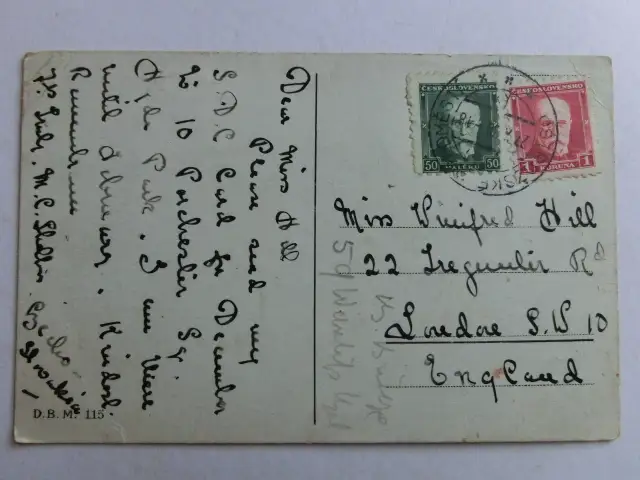 Dear Miss Hill
Please send my
S.D.C Card for December
to 10 Porchester Sq.
Hyde Park. I am here
until February. Kindest
Remembrances
Yrs truly. M.C.
ČESKOSLOVENSKO
50 HALÉŘŮ 50
ČESKOSLOVENSKO
1 KORUNA 1
Miss Winifred Hill
22 Tregunter Rd
London S.W 10
England
D.B.M. 115